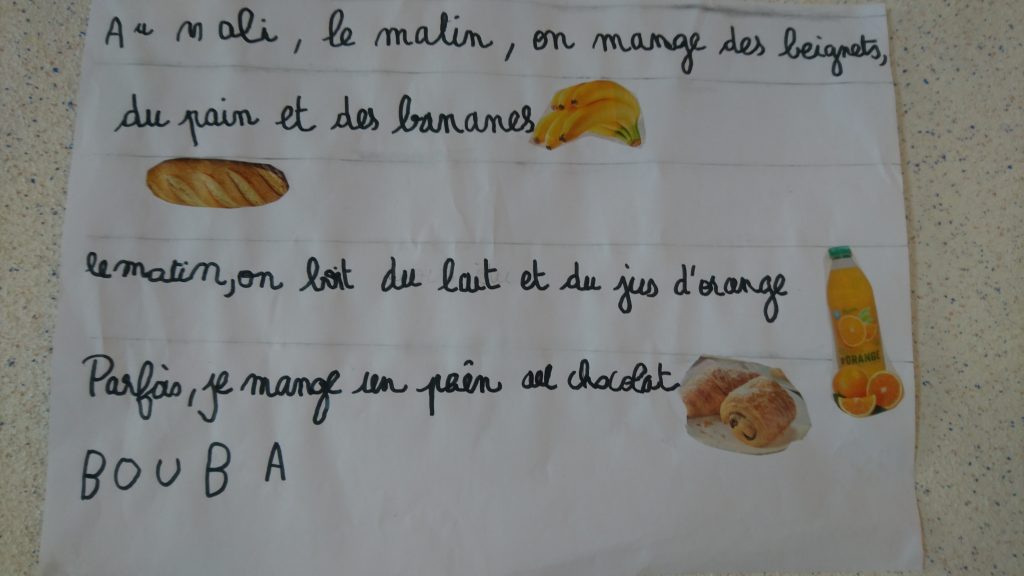 Au Mali, le matin, on mange des beignets,
du pain et des bananes
le matin, on boit du lait et du jus d'orange
ORANGE
Parfois, je mange un pain au chocolat
BOUBA